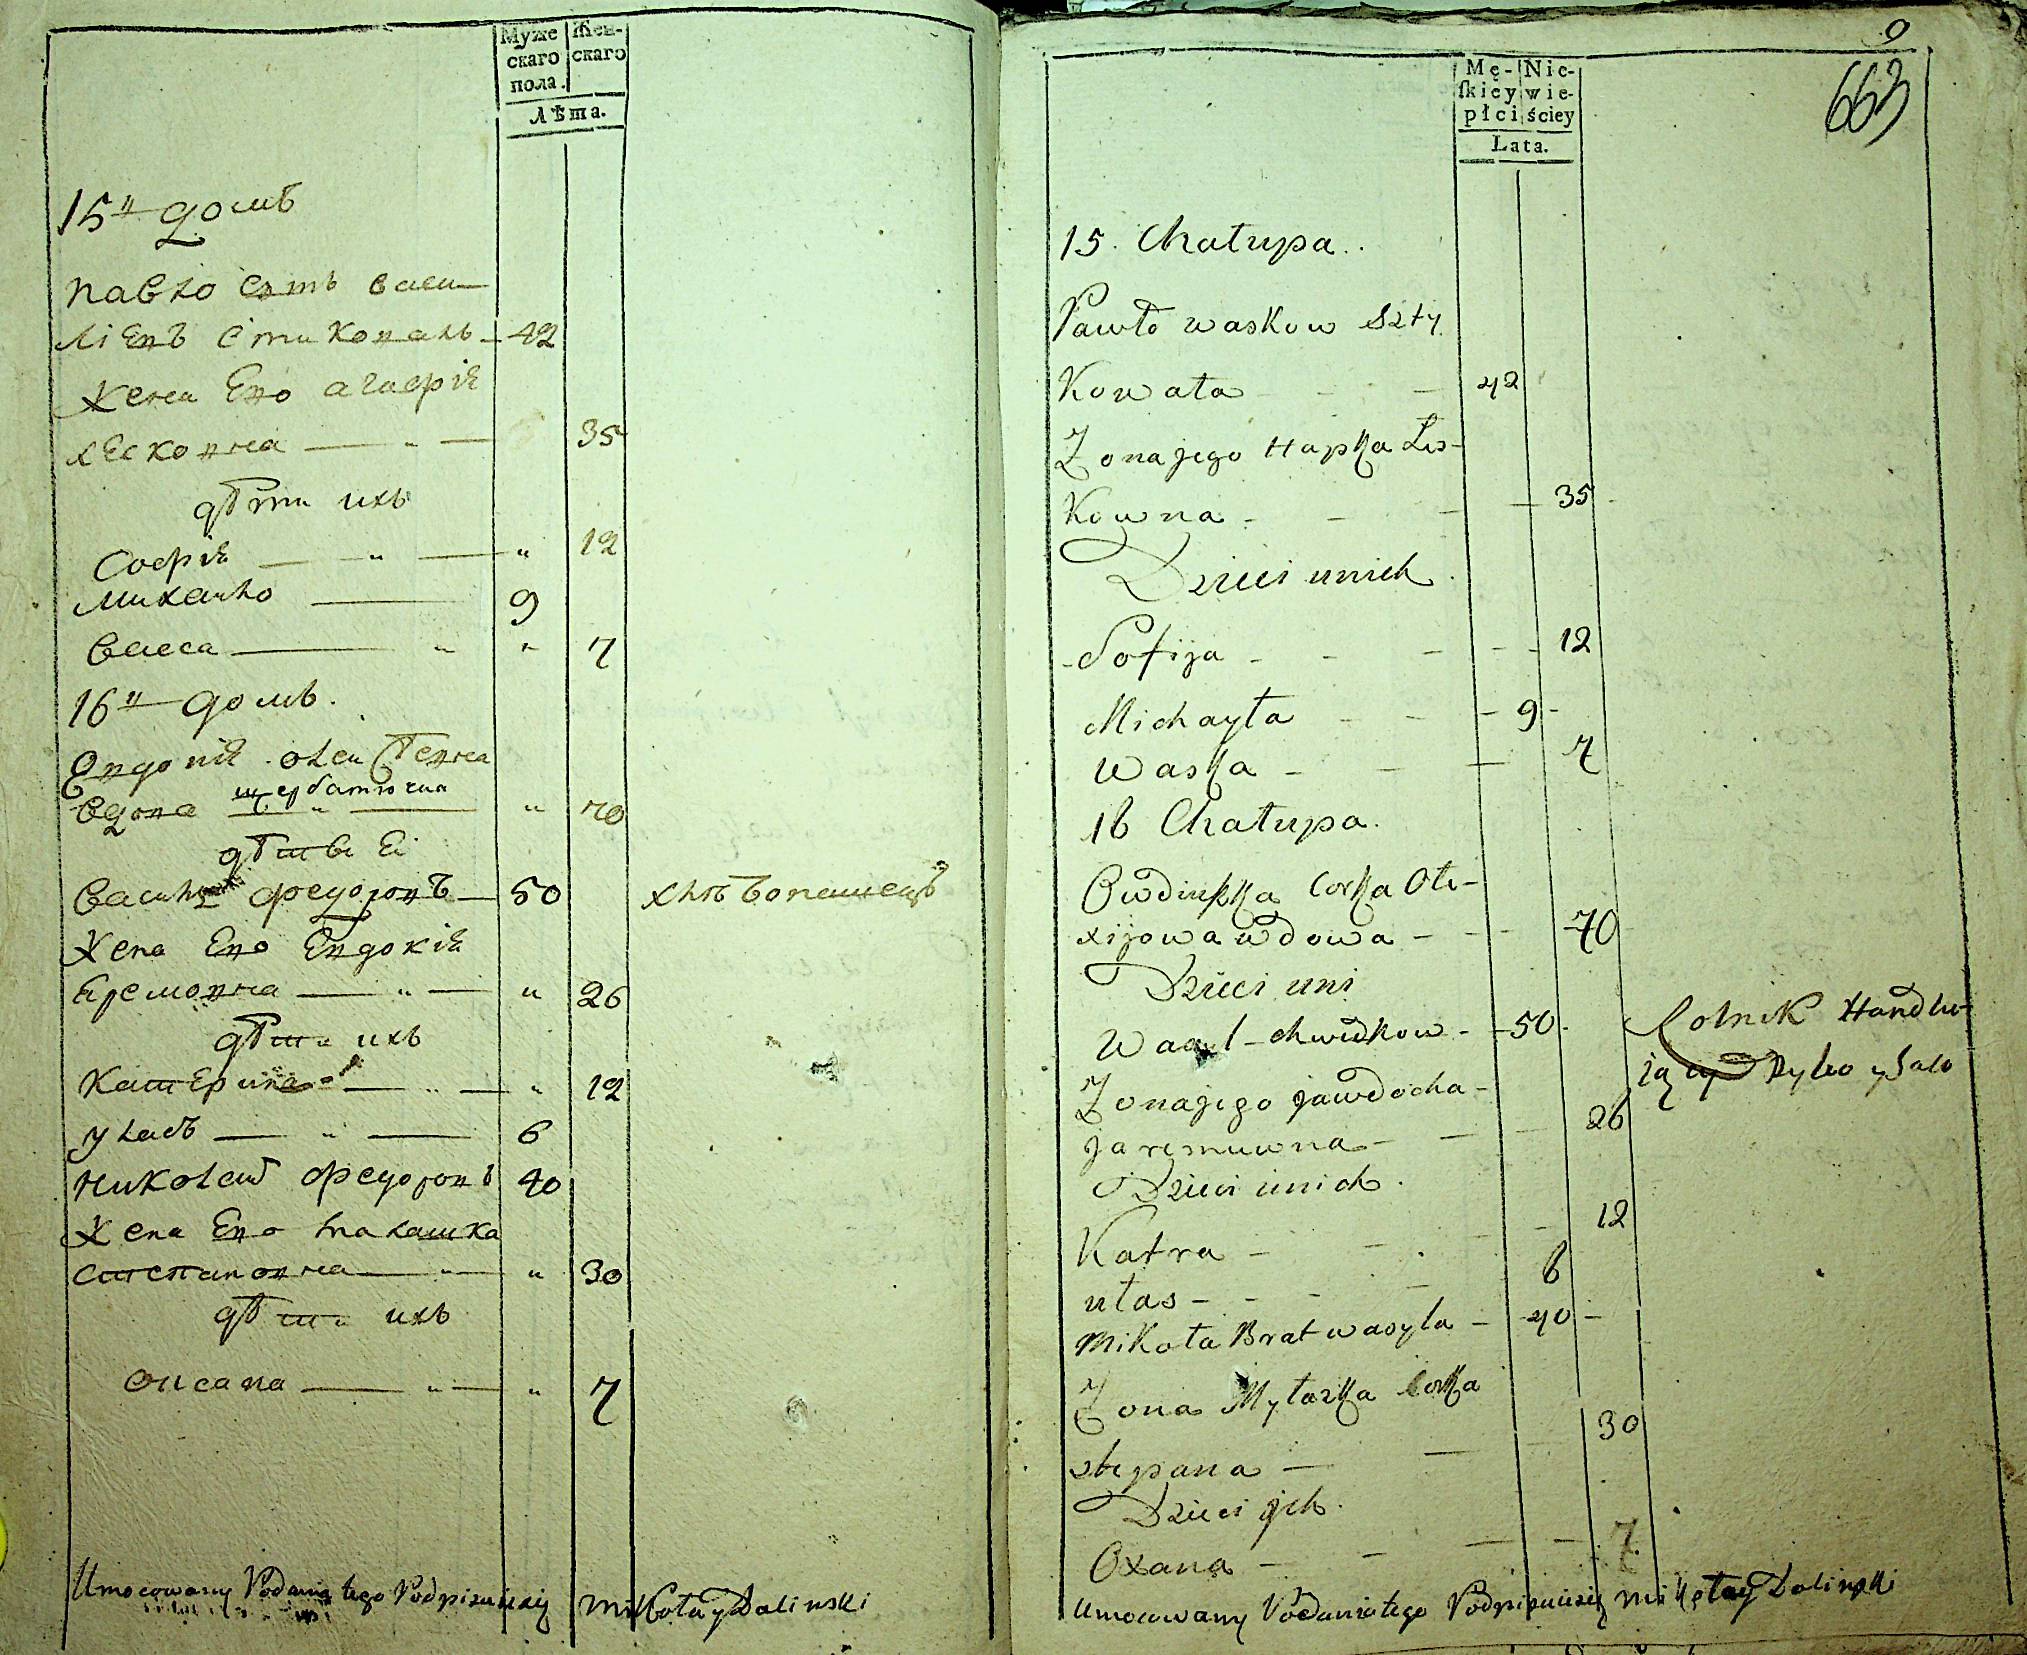 Муже
скаго
пола.
Жен-
скаго
Лѣта.
15й домъ
Павло сынъ васи
лiевъ Стиковаль 42
Жена Ево агафiя
лесковна 35
дѣти ихъ
Софiя 12
михайло 9
Васса 7
16й домъ.
Евдокiя Олексѣевна
щербатюгна
вдова 70
дѣти Еi
Василь федоровъ 50 хлѣбопашецъ
Жена Ево Евдокiя
Еремовна 26
дѣти ихъ
Катерина 12
Уласъ 6
Николай федоровъ 40
Жена Ево малашка
степановна 30
дѣти ихъ
Оксана 7
Umocowany Podania tego Podpisuiesię Mikołay Dolinski
9
663
Mę-
skiey
płci
Nie-
wie-
ściey
Lata.
15. Chałupa.
Pawło waskow Szty
Kowata 42
Zona jego Hapka Les-
Kowna 35
Dzieci unich
Sofija 12
Michayła 9
Waska 7
16 Chałupa.
Owdiukka Corka Ole-
xijowa wdowa 70
Dzieci uni
Wasyl chwedkow 50 Rolnik Handlu-
iący Rybo y Salo
Zona jego jawdocha
jaremuwna 26
Dzieci unich.
Katra 12
ułas 6
Mikoła Brat wasyla 40
Zona Myłaszka Corka
stepana 30
Dzieci jch.
Oxana 7
Umocowany Podania tego Podpisuiesię Mikołay Dolinski